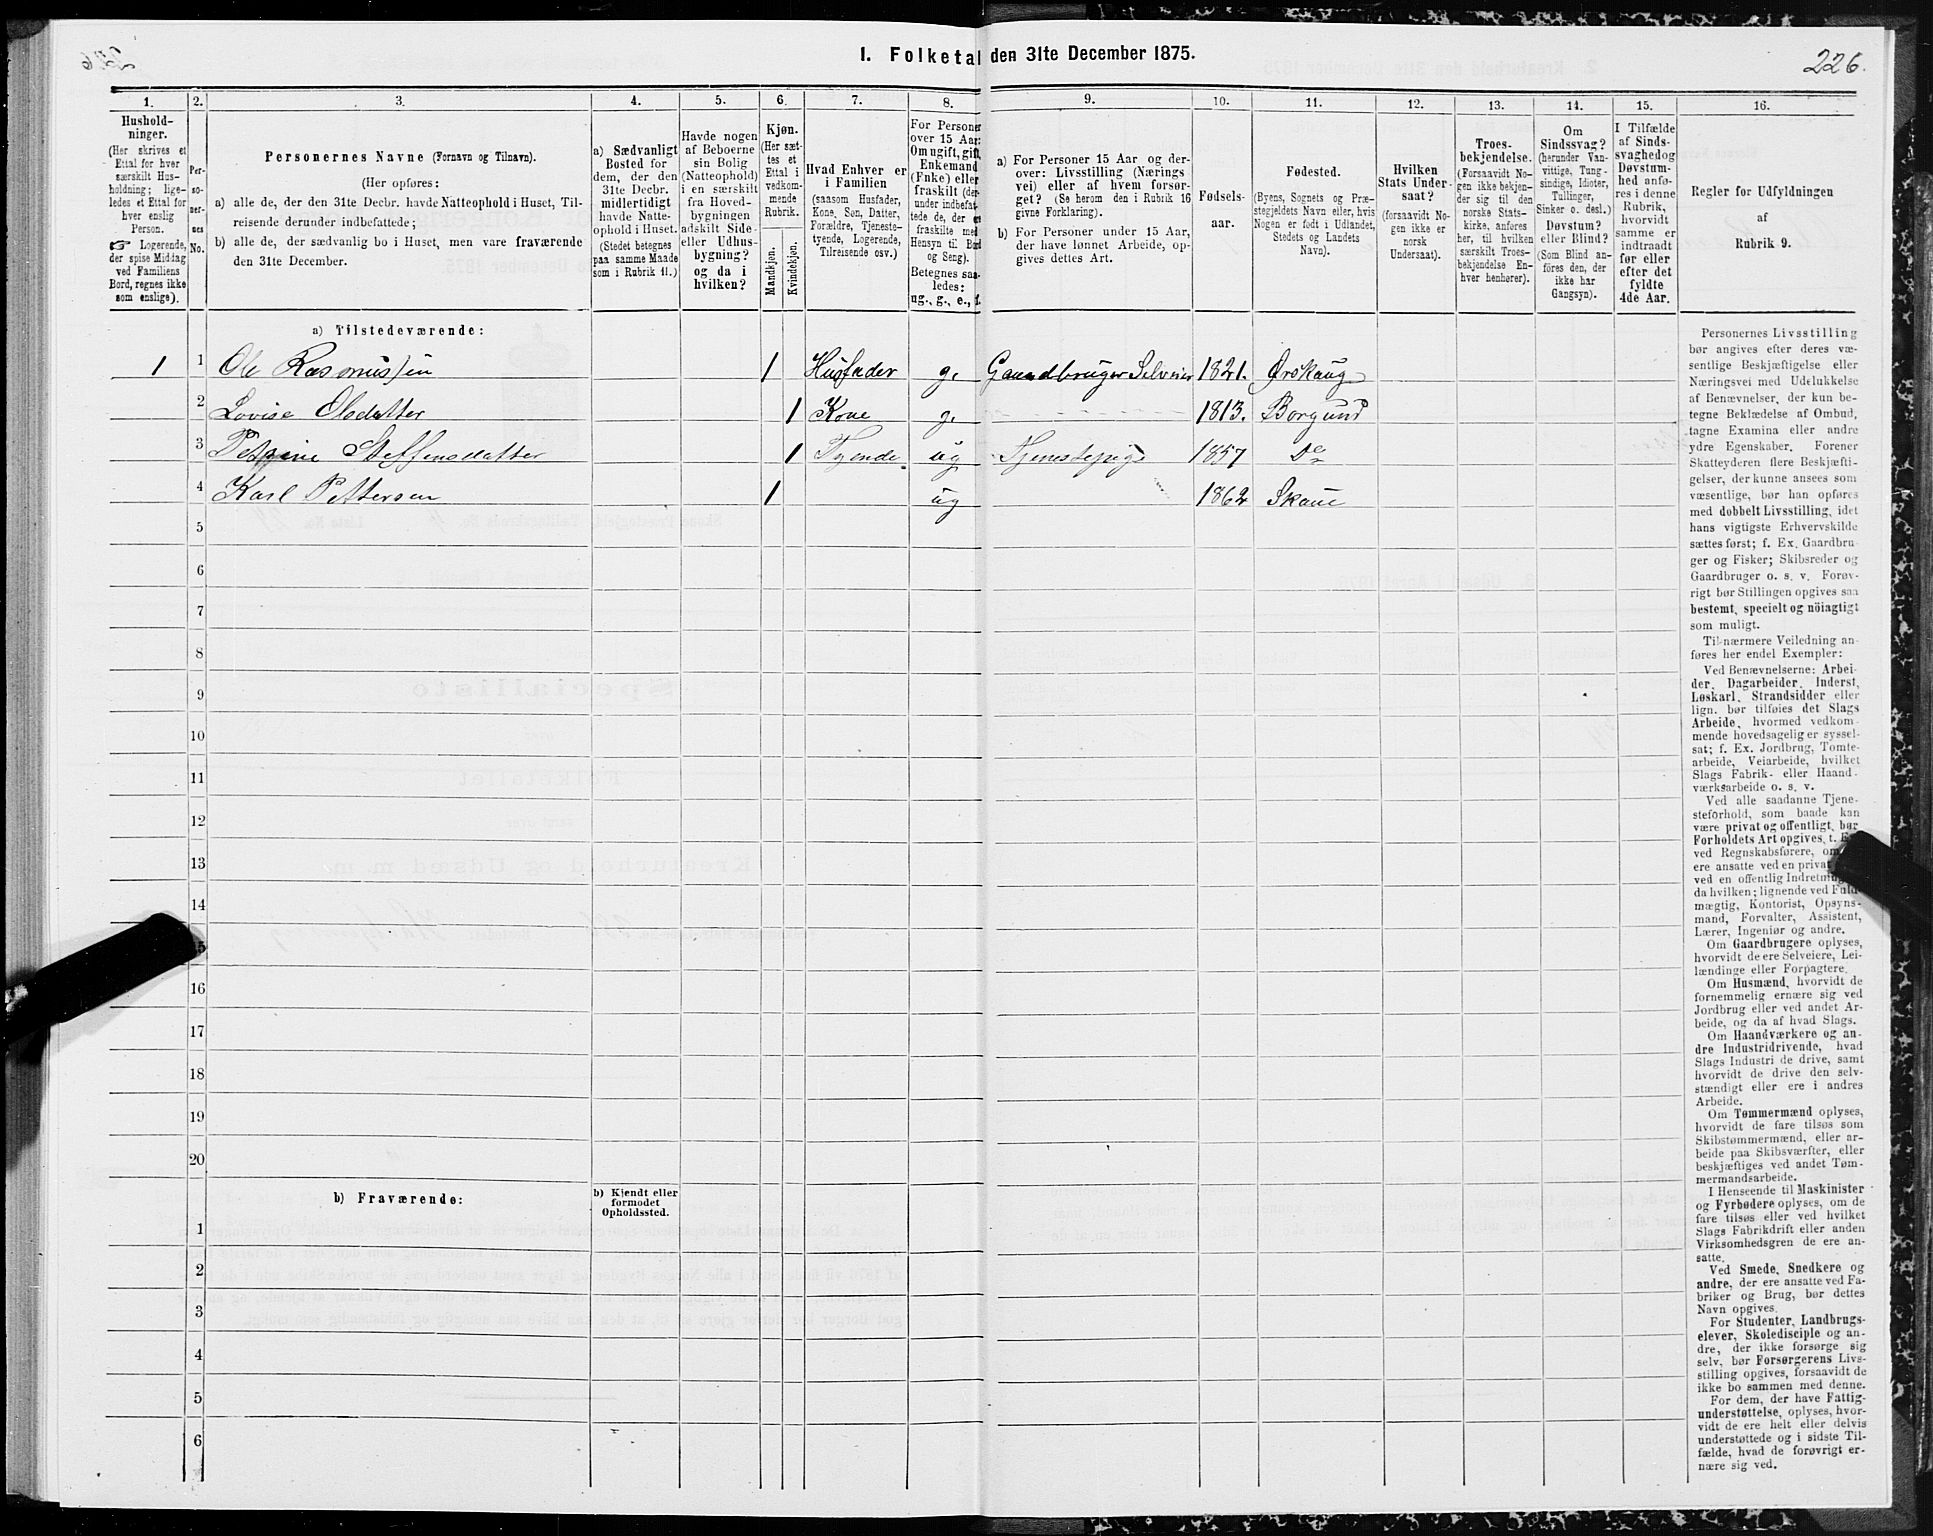 I. Folketal den 31te December 1875.
226.
1.
2.
3.
4.
5.
6.
7.
8.
9.
10.
11.
12.
13.
14.
15.
16.
Hushold-
ninger.
(Her skrives et
Ettal for hver
særskilt Hus-
holdning; lige-
ledes et Ettal for
hver enslig
Person.
☞ Logerende,
der spise Middag
ved Familiens
Bord, regnes ikke
som enslige).
Per-
so-
ner-
nes
No.
Personernes Navne (Fornavn og Tilnavn).
(Her opføres:
a) alle de, der den 31te Decbr. havde Natteophold i Huset, Til-
reisende derunder indbefattede;
b) alle de, der sædvanlig bo i Huset, men vare fraværende
den 31te December.
a) Sædvanligt
Bosted for
dem, der den
31te Decbr.
midlertidigt
havde Natte-
ophold i Huset.
(Stedet betegnes
paa samme Maade
som i Rubrik 11.)
Havde nogen
af Beboerne
sin Bolig
(Natteophold)
i en særskilt
fra Hoved-
bygningen
adskilt Side-
eller Udhus-
bygning?
og da i
hvilken?
Kjøn.
(Her sæt-
tes et
Ettal i
vedkom-
mende
Rubrik.
Mandkjøn.
Kvindekjøn.
Hvad Enhver er
i Familien
(saasom Husfader,
Kone, Søn, Datter,
Forældre, Tjeneste-
tyende, Logerende,
Tilreisende osv.)
For Personer
over 15 Aar:
Om ugift, gift,
Enkemand
(Enke) eller
fraskilt (der-
under indbefat-
tede de, der ere
fraskilte med
Hensyn til Bord
og Seng).
Betegnes saa-
ledes:
ug., g., e., f.
a) For Personer 15 Aar og der-
over: Livsstilling (Nærings
vei) eller af hvem forsør-
get? (Se herom den i Rubrik 16
givne Forklaring).
b) For Personer under 15 Aar,
der have lønnet Arbeide, op-
gives dettes Art.
Fødsels-
aar.
Fødested.
(Byens, Sognets og Præ-
stegjeldets Navn eller, hvis
Nogen er født i Udlandet,
Stedets og Landets
Navn).
Hvilken
Stats Under-
saat?
(forsaavidt No-
gen ikke er
norsk
Undersaat).
Troes-
bekjendelse.
(Forsaavidt No-
gen ikke bekjen-
der sig til den
norske Stats-
kirke, anføres
her, til hvilken
særskilt Troes-
bekjendelse En-
hver henhører).
Om
Sindssvag?
(herunder Van-
vittige, Tung-
sindige, Idioter,
Tullinger,
Sinker o. desl.)
Døvstum?
eller Blind?
(Som Blind an-
føres den, der
ikke har
Gangsyn).
I Tilfælde
af Sinds-
svaghed og
Døvstum-
hed anfø-
res i denne
Rubrik,
hvorvidt
samme er
indtraadt
før eller
efter det
fyldte
4de Aar.
Regler for Udfyldningen
af
Rubrik 9.
a) Tilstedeværende:
1 1 Ole Rasmussen 1 Husfader g. Gaardbruger Selveier 1821. Ørskaug
2 Lovise Olsdatter 1 Kone g. 1813. Borgund
3 Petrine Steffensdatter 1 Tyende ug Tjenestepige 1857 Do
4 Karl Pettersen 1 ug 1862 Skaue
5
6
7
8
9
10
11
12
13
14
15
16
17
18
19
20
b) Fraværende:
b) Kjendt eller
formodet
Opholdssted.
1
2
3
4
5
6
Personernes Livsstilling
bør angives efter deres væ-
sentlige Beskjæftigelse eller
Næringsvei med Udelukkelse
af Benævnelser, der kun be-
tegne Beklædelse af Ombud,
tagne Examina eller andre
ydre Egenskaber. Forener
Skatteyderen flere Beskjæfti-
gelser, der kunne ansees som
væsentlige, bør han opføres
med dobbelt Livsstilling, idet
hans vigtigste Erhvervskilde
sættes først; f. Ex. Gaardbru-
ger og Fisker; Skibsreder og
Gaardbruger o. s. v. Forøv-
rigt bør Stillingen opgives saa
bestemt, specielt og nöiagtigt
som muligt.
Til nærmere Veiledning an-
føres her endel Exempler:
Ved Benævnelserne: Arbei-
der, Dagarbeider, Inderst,
Løskarl, Strandsidder eller
lign. bør tilføies det Slags
Arbeide, hvormed vedkom-
mende hovedsagelig er syssel-
sat; f. Ex. Jordbrug, Tomte-
arbeide, Veiarbeide, hvilket
Slags Fabrik- eller Haand-
værksarbeide o. s. v.
Ved alle saadanne Tjene-
steforhold, som baade kan
være privat og offentligt, bør
Forholdets Art opgives, t. Ex.
ved Regnskabsførere, om de
ere ansatte ved en privat eller
ved en offentlig Indretning og
da hvilken; lignende ved Fuld-
mægtig, Kontorist, Opsyns-
mand, Forvalter, Assistent,
Lærer, Ingeniør og andre.
Om Gaardbrugere oplyses,
hvorvidt de ere Selveiere, Lei-
lændinge eller Forpagtere.
Om Husmænd, hvorvidt de
fornemmelig ernære sig ved
Jordbrug eller ved andet Ar-
beide, og da af hvad Slags.
Om Haandværkere og an-
dre Industridrivende, hvad
Slags Industri de drive, samt
hvorvidt de drive den selv-
stændigt eller ere i andres
Arbeide.
Om Tømmermænd oplyses,
hvorvidt de fare tilsøs som
Skibstømmermænd, eller ar-
beide paa Skibsværfter, eller
beskjæftiges ved andet Tøm-
mermandsarbeide.
I Henseende til Maskinister
og Fyrbødere oplyses, om de
fare tilsøs eller ved hvilket
Slags Fabrikdrift eller anden
Virksomhedsgren de ere an-
satte.
Ved Smede, Snedkere og
andre, der ere ansatte ved Fa-
briker og Brug, bør dettes
Navn opgives.
For Studenter, Landbrugs-
elever, Skoledisciple og an-
dre, der ikke forsørge sig
selv, bør Forsørgerens Livs-
stilling opgives, forsaavidt de
ikke bo sammen med denne.
For dem, der have Fattig-
understøttelse, oplyses, hvor-
vidt de ere helt eller delvis
understøttede og i sidste Til-
fælde, hvad de forøvrigt er-
nære sig ved.